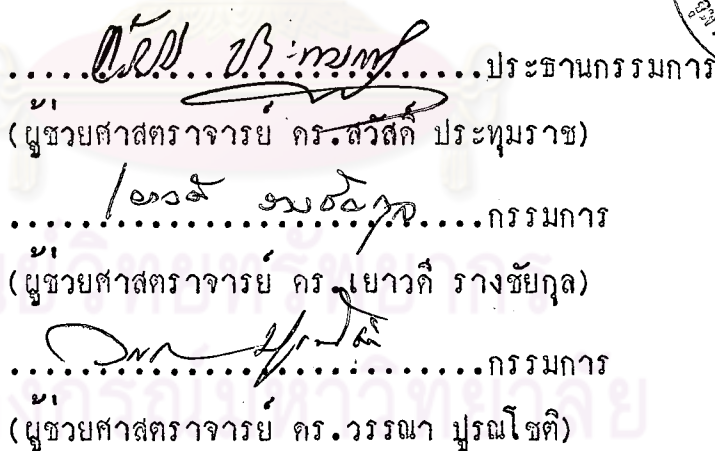 ....................ประธานกรรมการ
(ผู้ช่วยศาสตราจารย์ ดร.สวัสดิ์ ประทุมราช)
....................กรรมการ
(ผู้ช่วยศาสตราจารย์ ดร.เยาวดี รางชัยกุล)
....................กรรมการ
(ผู้ช่วยศาสตราจารย์ ดร.วรรณา ปูรณโชติ)